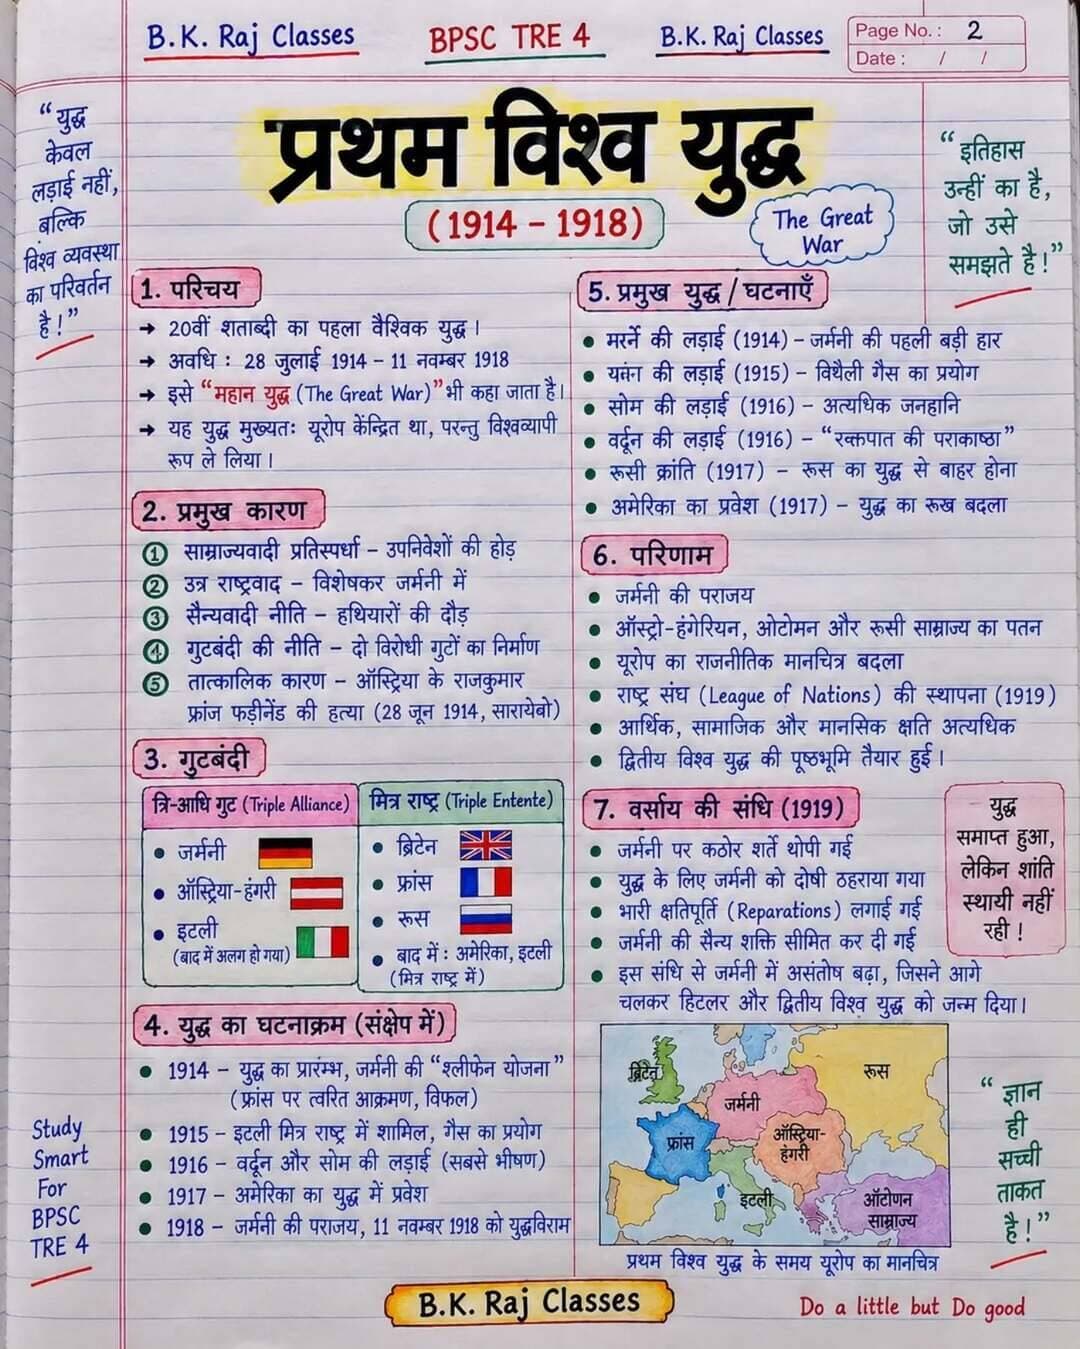 B.K. Raj Classes
BPSC TRE 4
B.K. Raj Classes
Page No.: 2
Date: / /
“युद्ध
केवल
लड़ाई नहीं,
बल्कि
विश्व व्यवस्था
का परिवर्तन
है!”
प्रथम विश्व युद्ध
(1914 – 1918)
The Great
War
“इतिहास
उन्हीं का है,
जो उसे
समझते है!”
1. परिचय
→ 20वीं शताब्दी का पहला वैश्विक युद्ध।
→ अवधि : 28 जुलाई 1914 – 11 नवम्बर 1918
→ इसे “महान युद्ध (The Great War)” भी कहा जाता है।
→ यह युद्ध मुख्यतः यूरोप केंन्द्रित था, परन्तु विश्वव्यापी
रूप ले लिया।
2. प्रमुख कारण
① साम्राज्यवादी प्रतिस्पर्धा – उपनिवेशों की होड़
② उत्र राष्ट्रवाद – विशेषकर जर्मनी में
③ सैन्यवादी नीति – हथियारों की दौड़
④ गुटबंदी की नीति – दो विरोधी गुटों का निर्माण
⑤ तात्कालिक कारण – ऑस्ट्रिया के राजकुमार
फ्रांज फड़ीनेंड की हत्या (28 जून 1914, सारायेबो)
3. गुटबंदी
त्रि-आधि गुट (Triple Alliance)
• जर्मनी
• ऑस्ट्रिया-हंगरी
• इटली
(बाद में अलग हो गया)
मित्र राष्ट्र (Triple Entente)
• ब्रिटेन
• फ्रांस
• रूस
• बाद में : अमेरिका, इटली
(मित्र राष्ट्र में)
4. युद्ध का घटनाक्रम (संक्षेप में)
• 1914 – युद्ध का प्रारंम्भ, जर्मनी की “श्लीफेन योजना”
(फ्रांस पर त्वरित आक्रमण, विफल)
• 1915 – इटली मित्र राष्ट्र में शामिल, गैस का प्रयोग
• 1916 – वर्दून और सोम की लड़ाई (सबसे भीषण)
• 1917 – अमेरिका का युद्ध में प्रवेश
• 1918 – जर्मनी की पराजय, 11 नवम्बर 1918 को युद्धविराम
5. प्रमुख युद्ध / घटनाएँ
• मर्र्ने की लड़ाई (1914) – जर्मनी की पहली बड़ी हार
• की लड़ाई (1915) – विथैली गैस का प्रयोग
• सोम की लड़ाई (1916) – अत्यधिक जनहानि
• वर्दून की लड़ाई (1916) – “रक्तपात की पराकाष्ठा”
• रूसी क्रांति (1917) – रूस का युद्ध से बाहर होना
• अमेरिका का प्रवेश (1917) – युद्ध का रूख बदला
6. परिणाम
• जर्मनी की पराजय
• ऑस्ट्रो-हंगेरियन, ओटोमन और रूसी साम्राज्य का पतन
• यूरोप का राजनीतिक मानचित्र बदला
• राष्ट्र संघ (League of Nations) की स्थापना (1919)
• आर्थिक, सामाजिक और मानसिक क्षति अत्यधिक
• द्वितीय विश्व युद्ध की पृष्ठभूमि तैयार हुई।
7. वर्साय की संधि (1919)
• जर्मनी पर कठोर शर्ते थोपी गई
• युद्ध के लिए जर्मनी को दोषी ठहराया गया
• भारी क्षतिपूर्ति (Reparations) लगाई गई
• जर्मनी की सैन्य शक्ति सीमित कर दी गई
• इस संधि से जर्मनी में असंतोष बढ़ा, जिसने आगे
चलकर हिटलर और द्वितीय विश्व युद्ध को जन्म दिया।
युद्ध
समाप्त हुआ,
लेकिन शांति
स्थायी नहीं
रही!
ब्रिटेन
रूस
जर्मनी
फ्रांस
ऑस्ट्रिया-
हंगरी
इटली
ऑटोणन
साम्राज्य
प्रथम विश्व युद्ध के समय यूरोप का मानचित्र
Study
Smart
For
BPSC
TRE 4
“ज्ञान
ही
सच्ची
ताकत
है!”
B.K. Raj Classes
Do a little but Do good